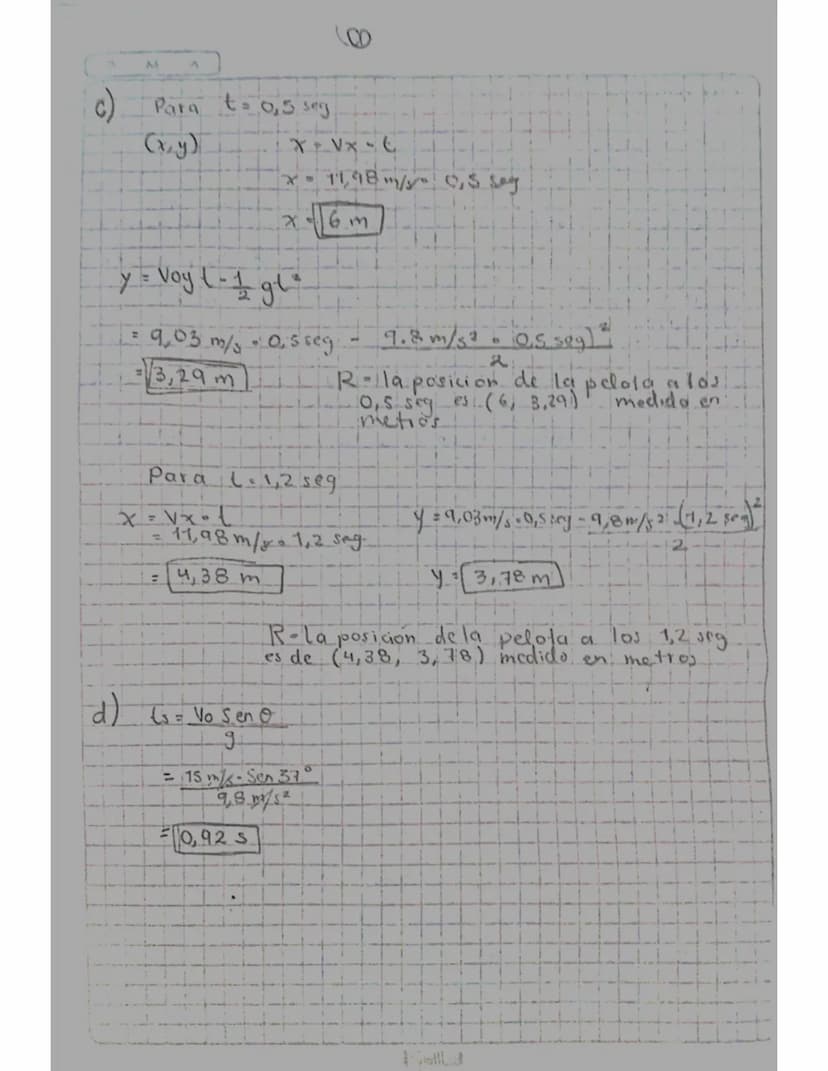 100
M A
c) Para t = 0,5 seg
(x,y) x = Vx · t
x = 11,98 m/s · 0,5 seg
x = 6 m
y = Voy t - 1/2 gt²
= 9,03 m/s · 0,5 seg - 9.8 m/s² · 0,5 seg)² / 2
= 3,29 m
R = la posición de la pelota a los
0,5 seg es (6, 3,29) medido en
metros
Para t = 1,2 seg
x = Vx · t y = 9,03 m/s · 0,5 seg - 9,8 m/s² · (1,2 seg)² / 2
= 11,98 m/s · 1,2 seg
= 4,38 m y = 3,78 m
R - La posición de la pelota a los 1,2 seg
es de (4,38, 3,78) medido en metros
d) ts = Vo Sen θ / g
= 15 m/s · Sen 37° / 9,8 m/s²
= 0,92 s